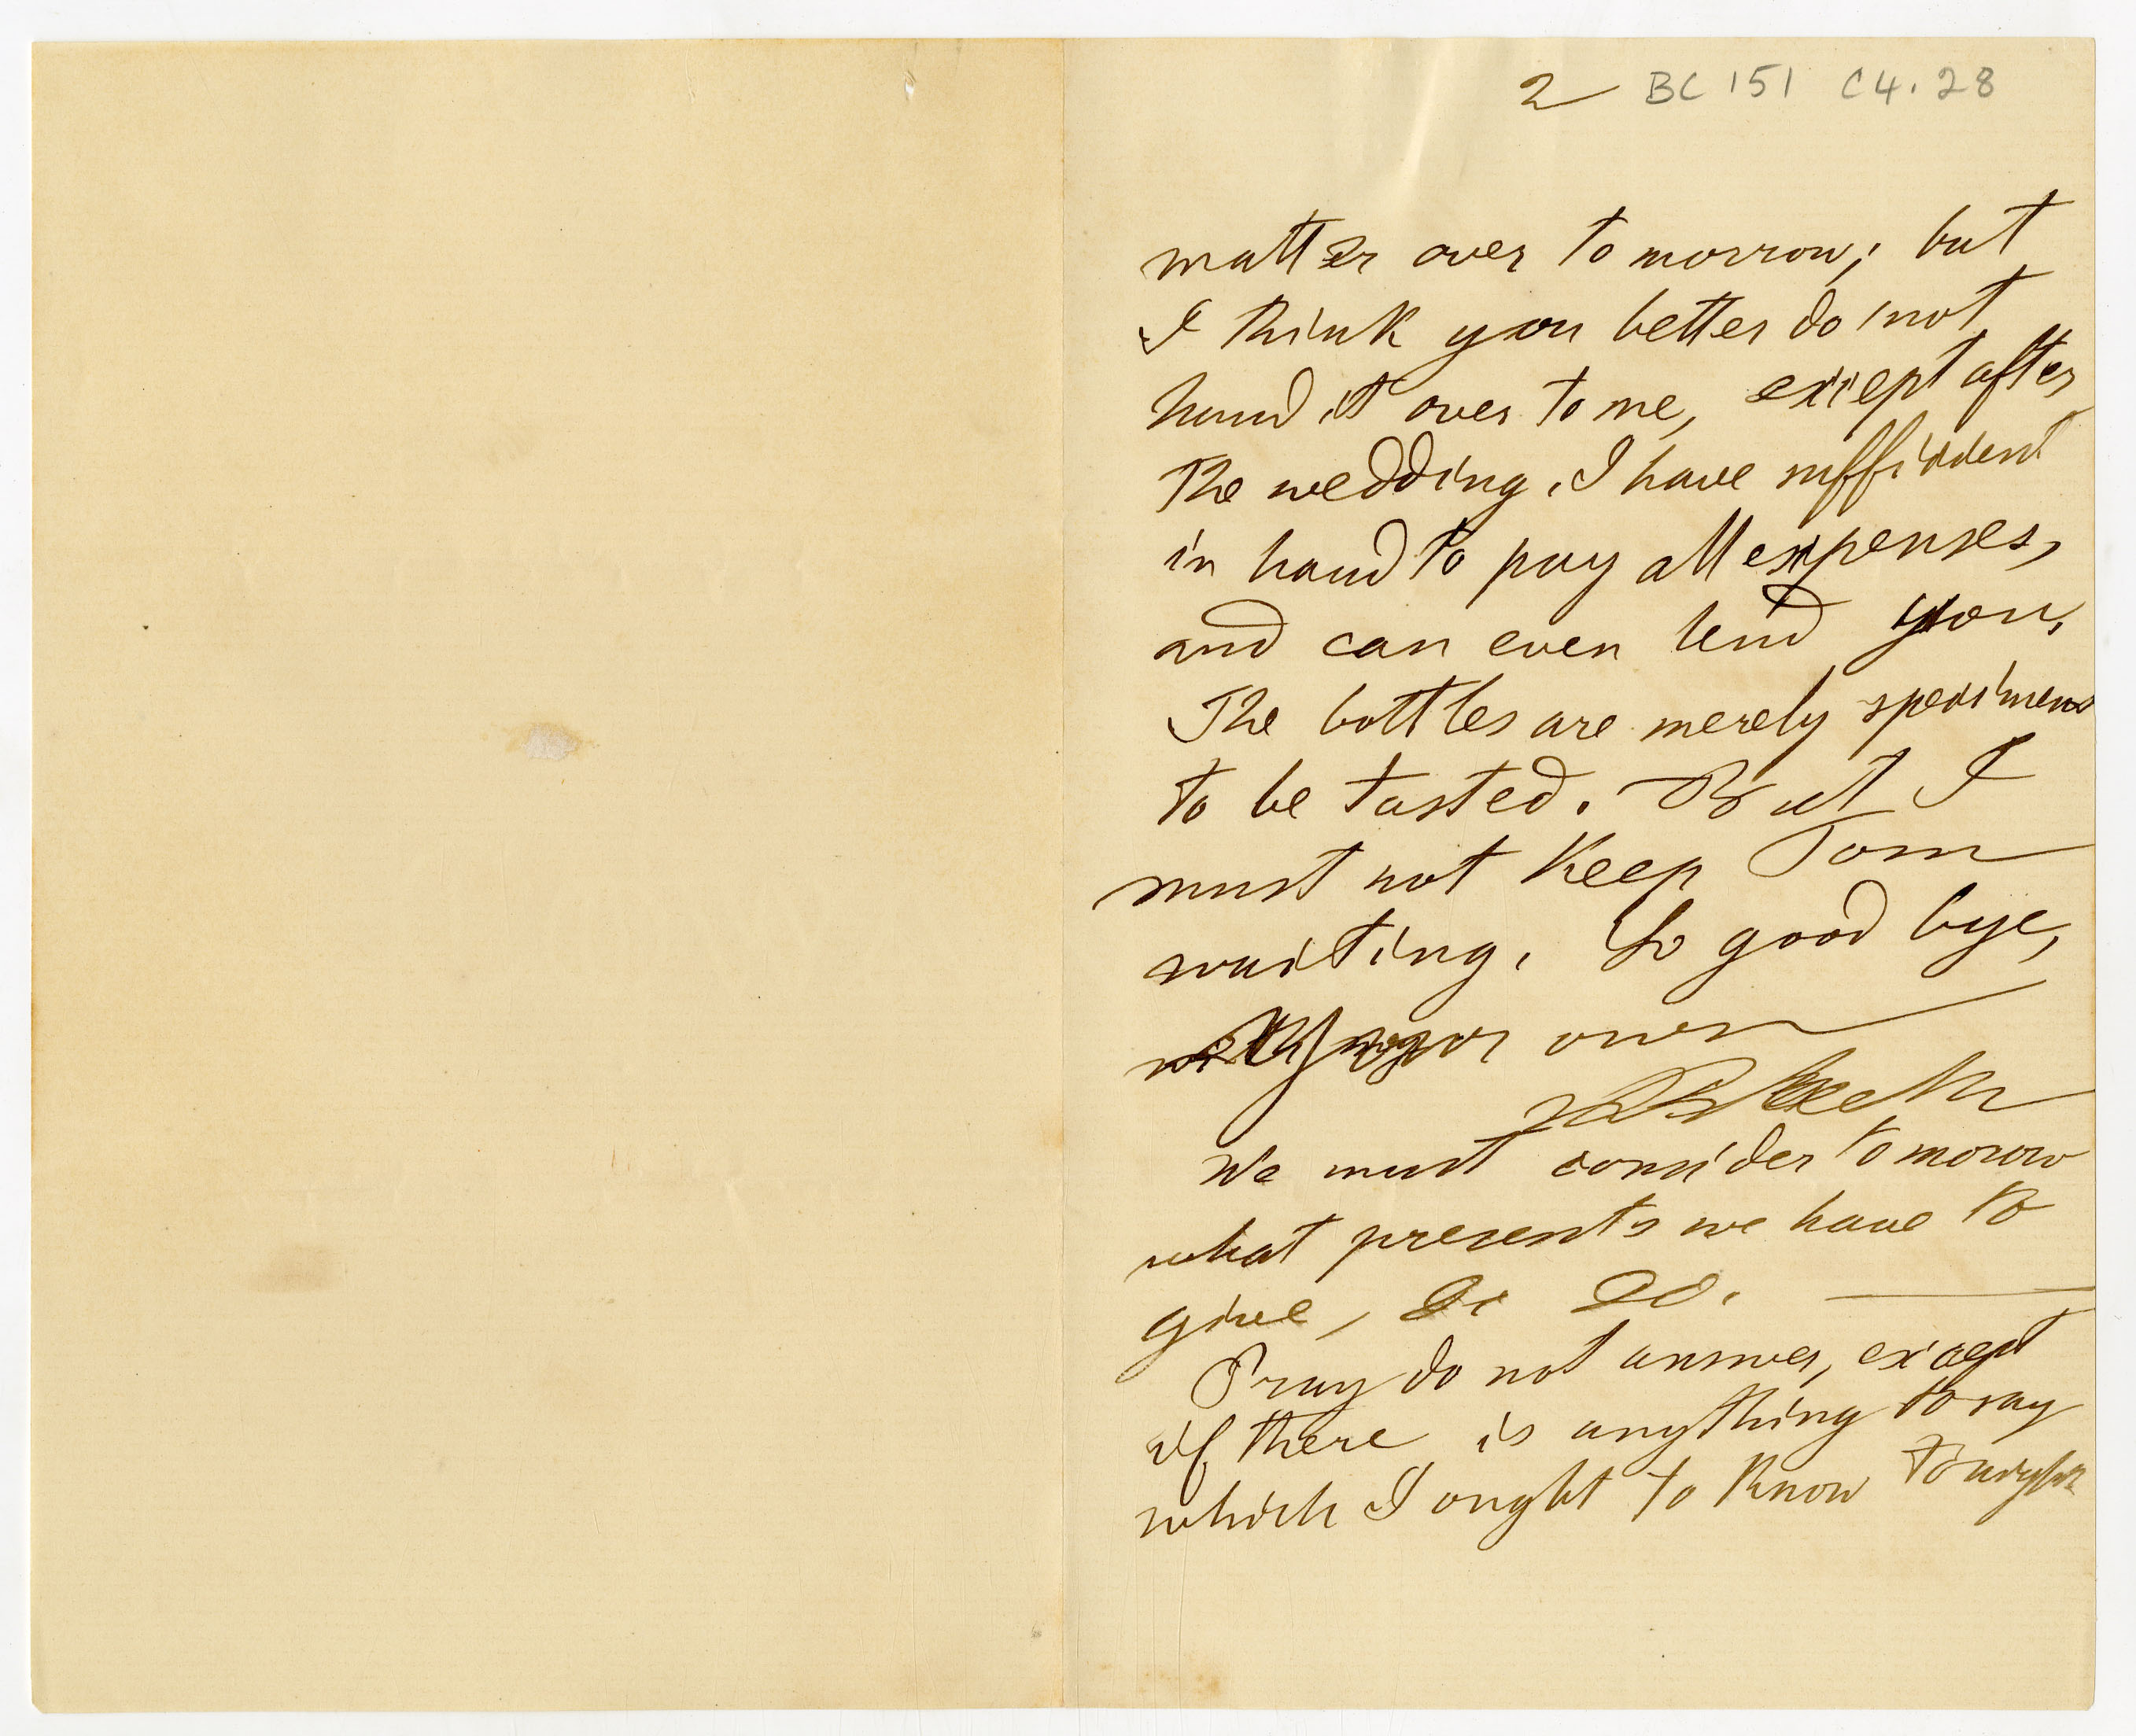 2 BC 151 C4.28
matter over to morrow; but
I think you better do not
hand it over to me, except after
the wedding. I have sufficient
in hand to pay all expenses,
and can even lend you,
The bottles are merely specimens
to be tasted. But I
must not keep Tom
waiting. So good bye,
your own
WBleek
We must consider to morrow
what presents we have to
give,
Pray do not answer, except
if there is anything to say
which I ought to know to night